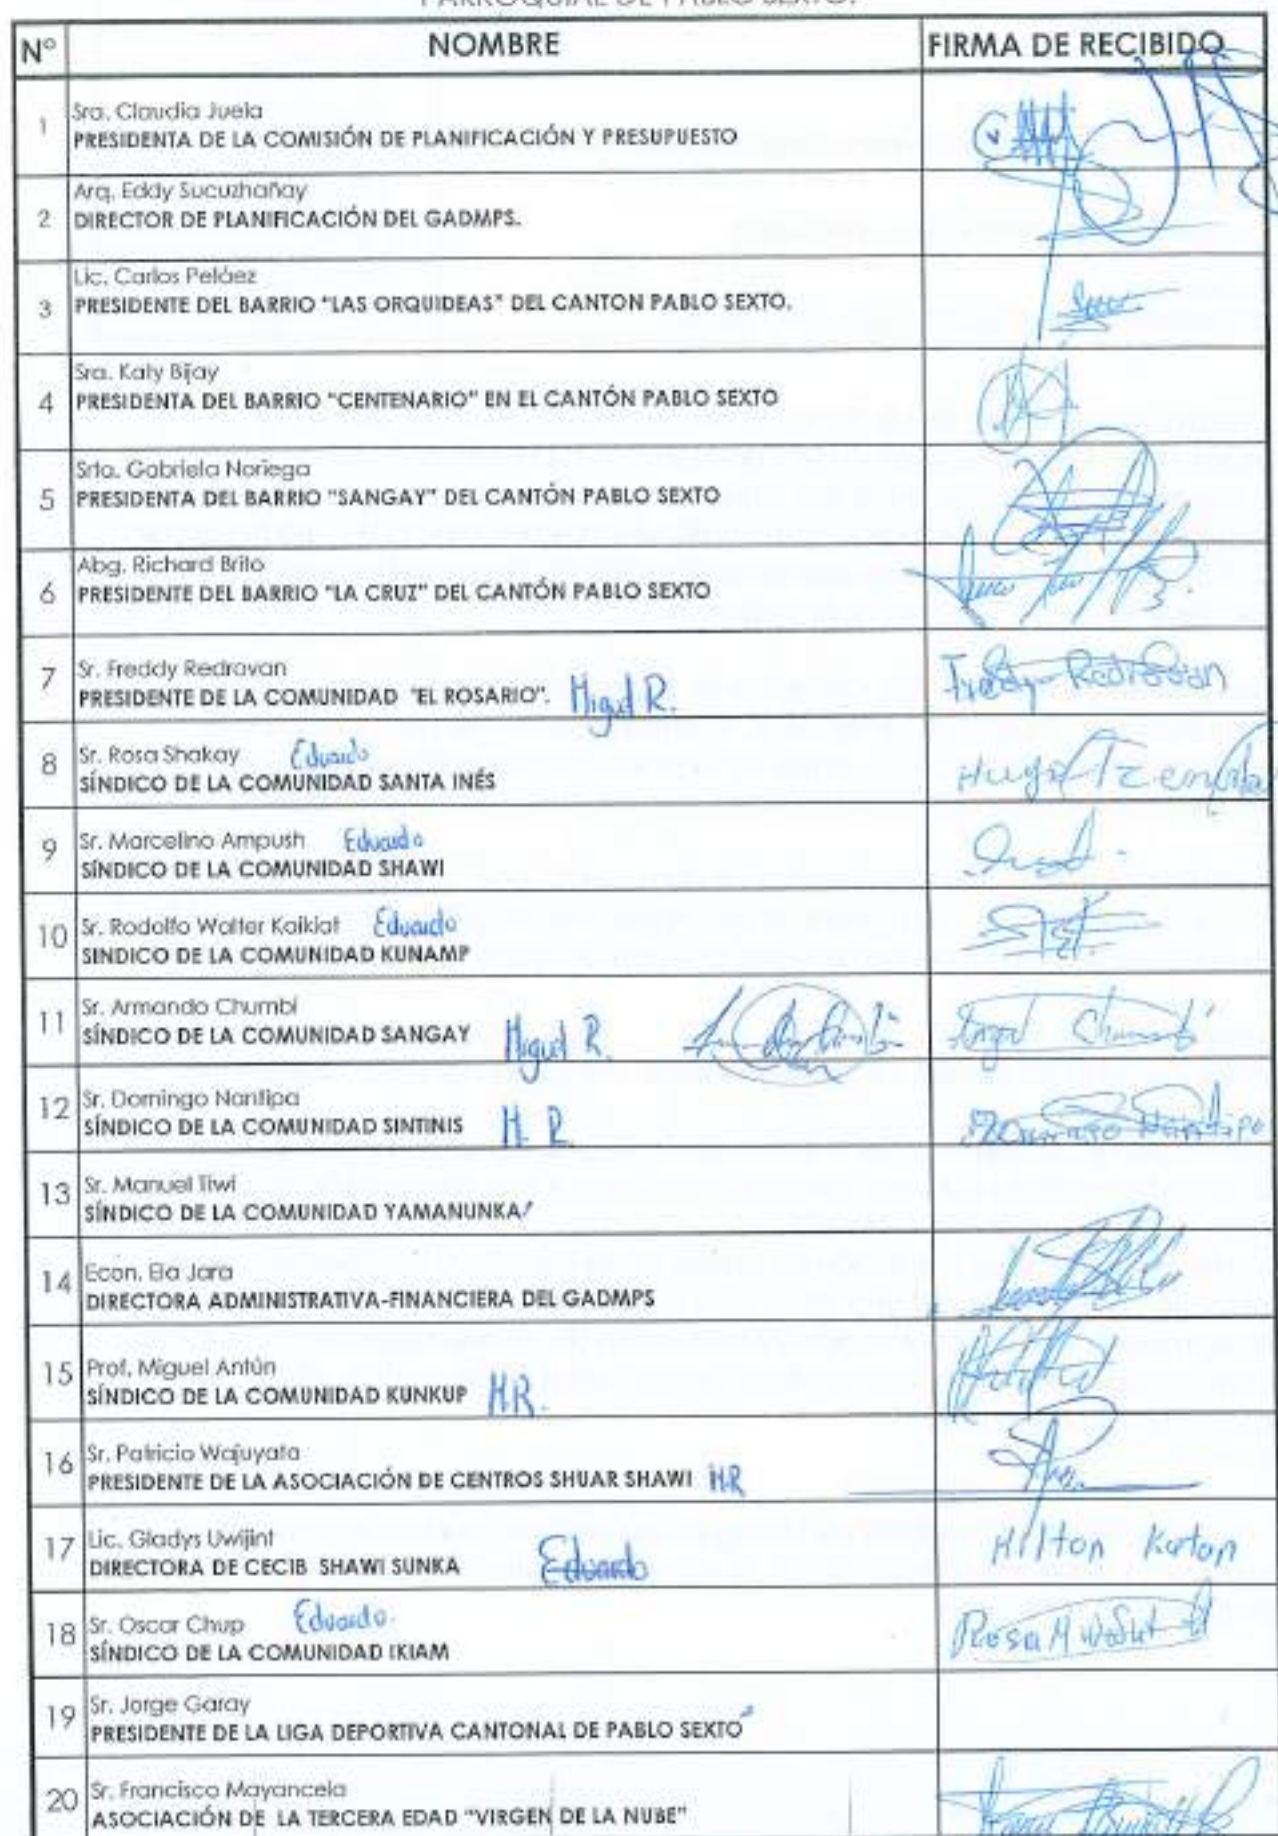 PARROQUIAL DE PABLO SEXTO.
Nº NOMBRE FIRMA DE RECIBIDO
1 Sra. Claudia Juela
PRESIDENTA DE LA COMISIÓN DE PLANIFICACIÓN Y PRESUPUESTO
2 Arq. Eddy Sucuzhañay
DIRECTOR DE PLANIFICACIÓN DEL GADMPS.
3 Lic. Carlos Peláez
PRESIDENTE DEL BARRIO "LAS ORQUIDEAS" DEL CANTON PABLO SEXTO.
4 Sra. Katy Bijay
PRESIDENTA DEL BARRIO "CENTENARIO" EN EL CANTÓN PABLO SEXTO
5 Srta. Gabriela Noriega
PRESIDENTA DEL BARRIO "SANGAY" DEL CANTÓN PABLO SEXTO
6 Abg. Richard Brito
PRESIDENTE DEL BARRIO "LA CRUZ" DEL CANTÓN PABLO SEXTO
7 Sr. Freddy Redrovan
PRESIDENTE DE LA COMUNIDAD "EL ROSARIO". Miguel R. Fredy Redrovan
8 Sr. Rosa Shakay Eduardo
SÍNDICO DE LA COMUNIDAD SANTA INÉS Hugo
9 Sr. Marcelino Ampush Eduardo
SÍNDICO DE LA COMUNIDAD SHAWI
10 Sr. Rodolfo Walter Kaikiat Eduardo
SINDICO DE LA COMUNIDAD KUNAMP
11 Sr. Armando Chumbi
SÍNDICO DE LA COMUNIDAD SANGAY Miguel R. Angel Chumbi
12 Sr. Domingo Nantipa
SÍNDICO DE LA COMUNIDAD SINTINIS M. R. Domingo Nantipa
13 Sr. Manuel Tiwi
SÍNDICO DE LA COMUNIDAD YAMANUNKA
14 Econ. Ela Jara
DIRECTORA ADMINISTRATIVA-FINANCIERA DEL GADMPS
15 Prof. Miguel Antún
SÍNDICO DE LA COMUNIDAD KUNKUP M.R.
16 Sr. Patricio Wajuyata
PRESIDENTE DE LA ASOCIACIÓN DE CENTROS SHUAR SHAWI M.R
17 Lic. Gladys Uwijint
DIRECTORA DE CECIB SHAWI SUNKA Eduardo Hilton
18 Sr. Oscar Chup Eduardo.
SÍNDICO DE LA COMUNIDAD IKIAM Rosa
19 Sr. Jorge Garay
PRESIDENTE DE LA LIGA DEPORTIVA CANTONAL DE PABLO SEXTO
20 Sr. Francisco Mayancela
ASOCIACIÓN DE LA TERCERA EDAD "VIRGEN DE LA NUBE"